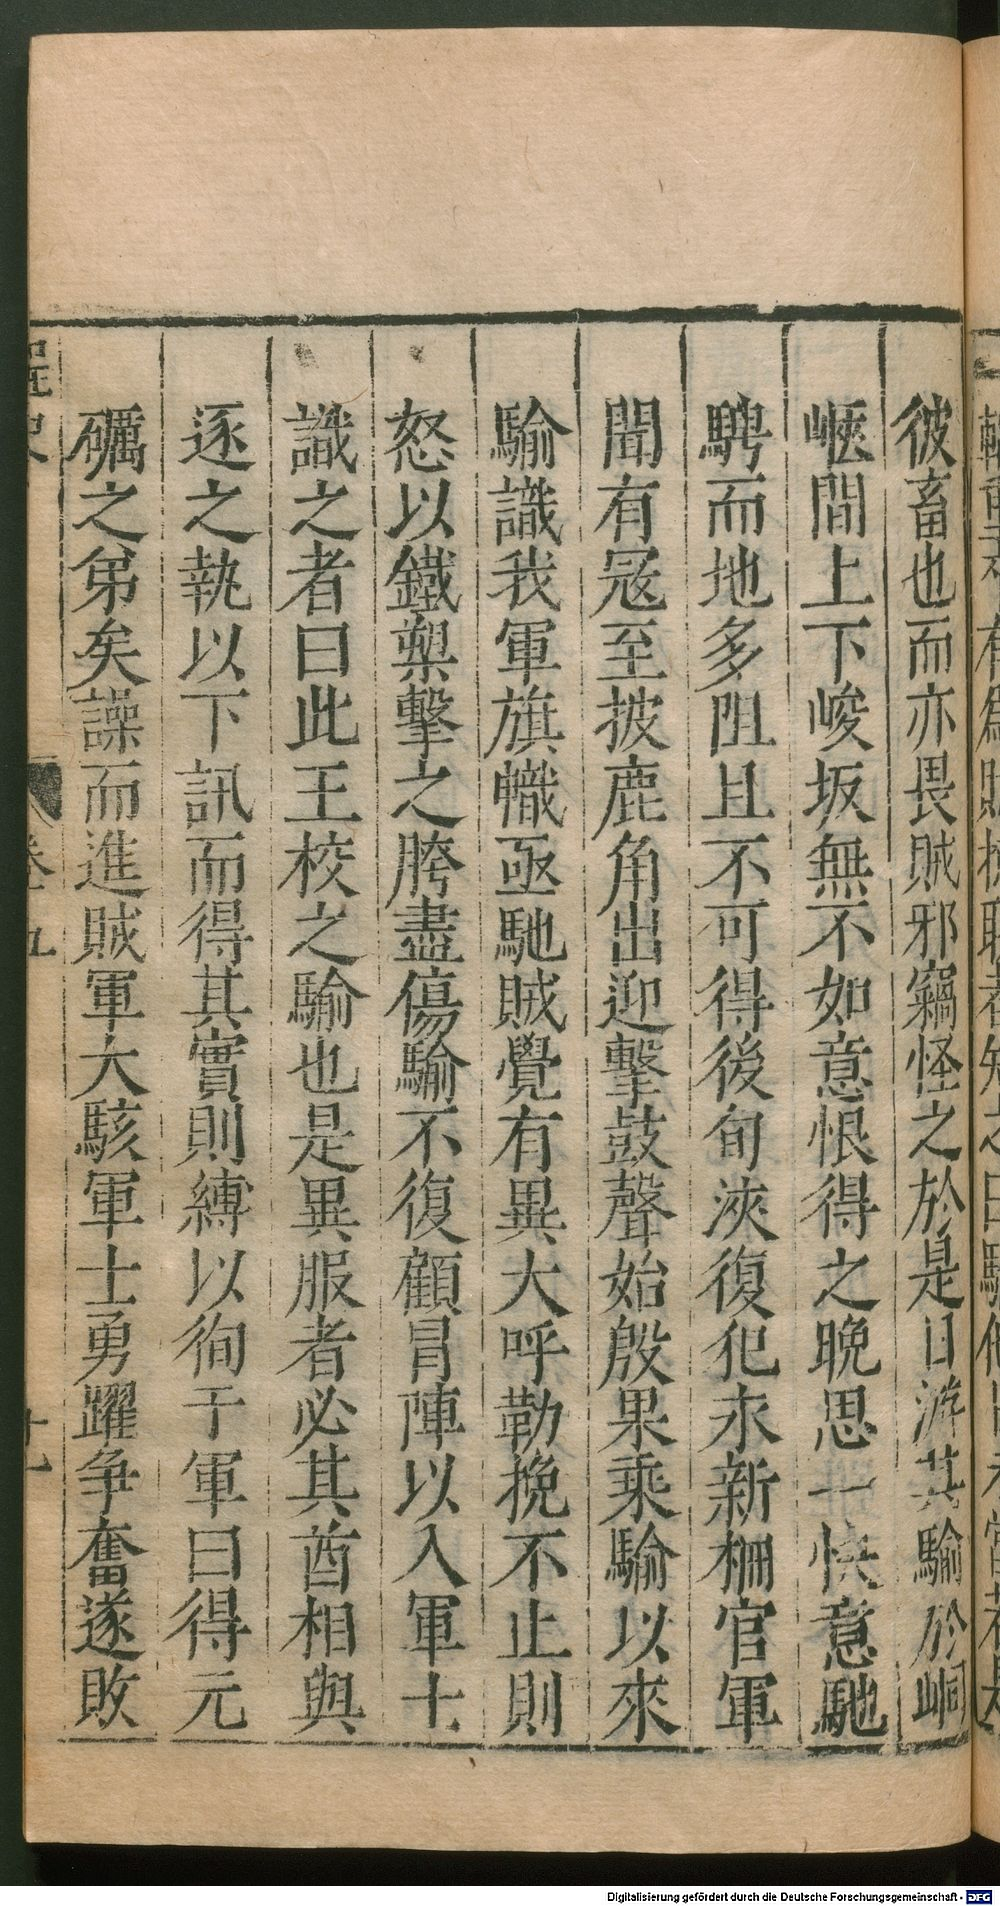 彼畜也而亦畏賊邪竊怪之於是日游其騟於峒
峽間上下峻坂無不如意恨得之晚思一快意馳
騁而地多阻且不可得後旬浹復犯永新柵官軍
聞有冦至披鹿角出迎擊鼓聲始殷果乘騟以來
騟識我軍旗幟亟馳賊覺有異大呼勒挽不止則
怒以鐵槊擊之胯盡傷騟不復顧冒陣以入軍士
識之者曰此王校之騟也是異服者必其酋相與
逐之執以下訊而得其實則縛以徇于軍曰得元
礪之弟矣譟而進賊軍大駭軍士勇躍争奮遂敗
桯史
卷五
十一
Digitalisierung gefördert durch die Deutsche Forschungsgemeinschaft - DFG